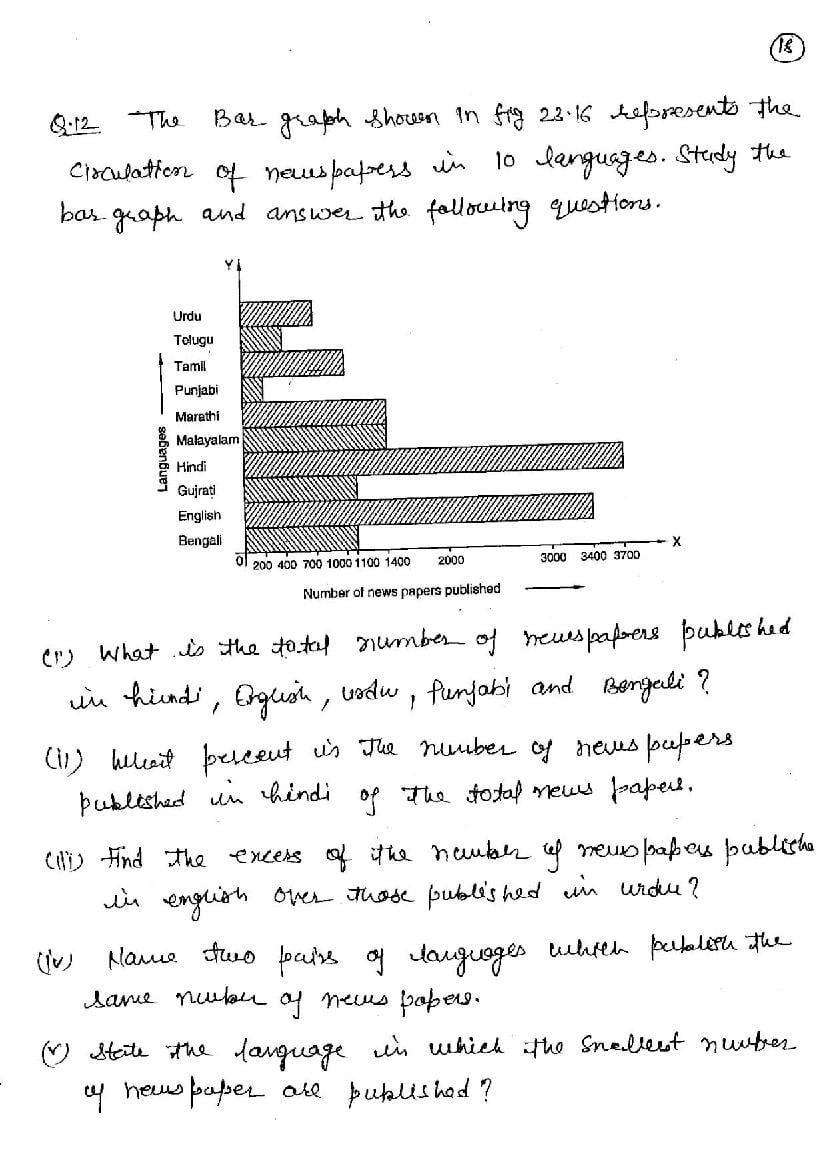 18
Q.12 The Bar graph shown in fig 23.16 represents the
circulation of newspapers in 10 languages. Study the
bar graph and answer the following questions.
Y
Urdu
Telugu
Tamil
Punjabi
Marathi
Malayalam
Hindi
Gujrati
English
Bengali
Languages
0 200 400 700 1000 1100 1400 2000 3000 3400 3700 X
Number of news papers published
(i) What is the total number of newspapers published
in hindi, English, urdu, Punjabi and Bengali?
(ii) What percent is the number of news papers
published in hindi of the total news papers.
(iii) Find the excess of the number of newspapers publishe
in english over those published in urdu?
(iv) Name two pairs of languages which publish the
same number of news papers.
(v) State the language in which the smallest number
of newspaper are published?